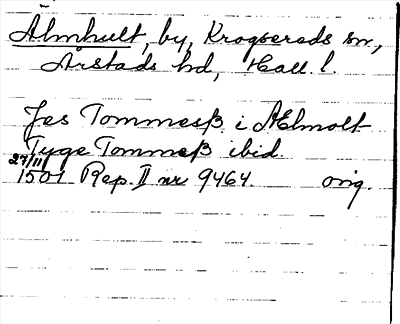 Älmhult, by, Krogsereds sn,
Årstads hd, Hall. l.
Jes Tommesß i Ælmolt
Tyge Tommeß ibid.
27/11
1501 Rep. II nr 9464. orig.